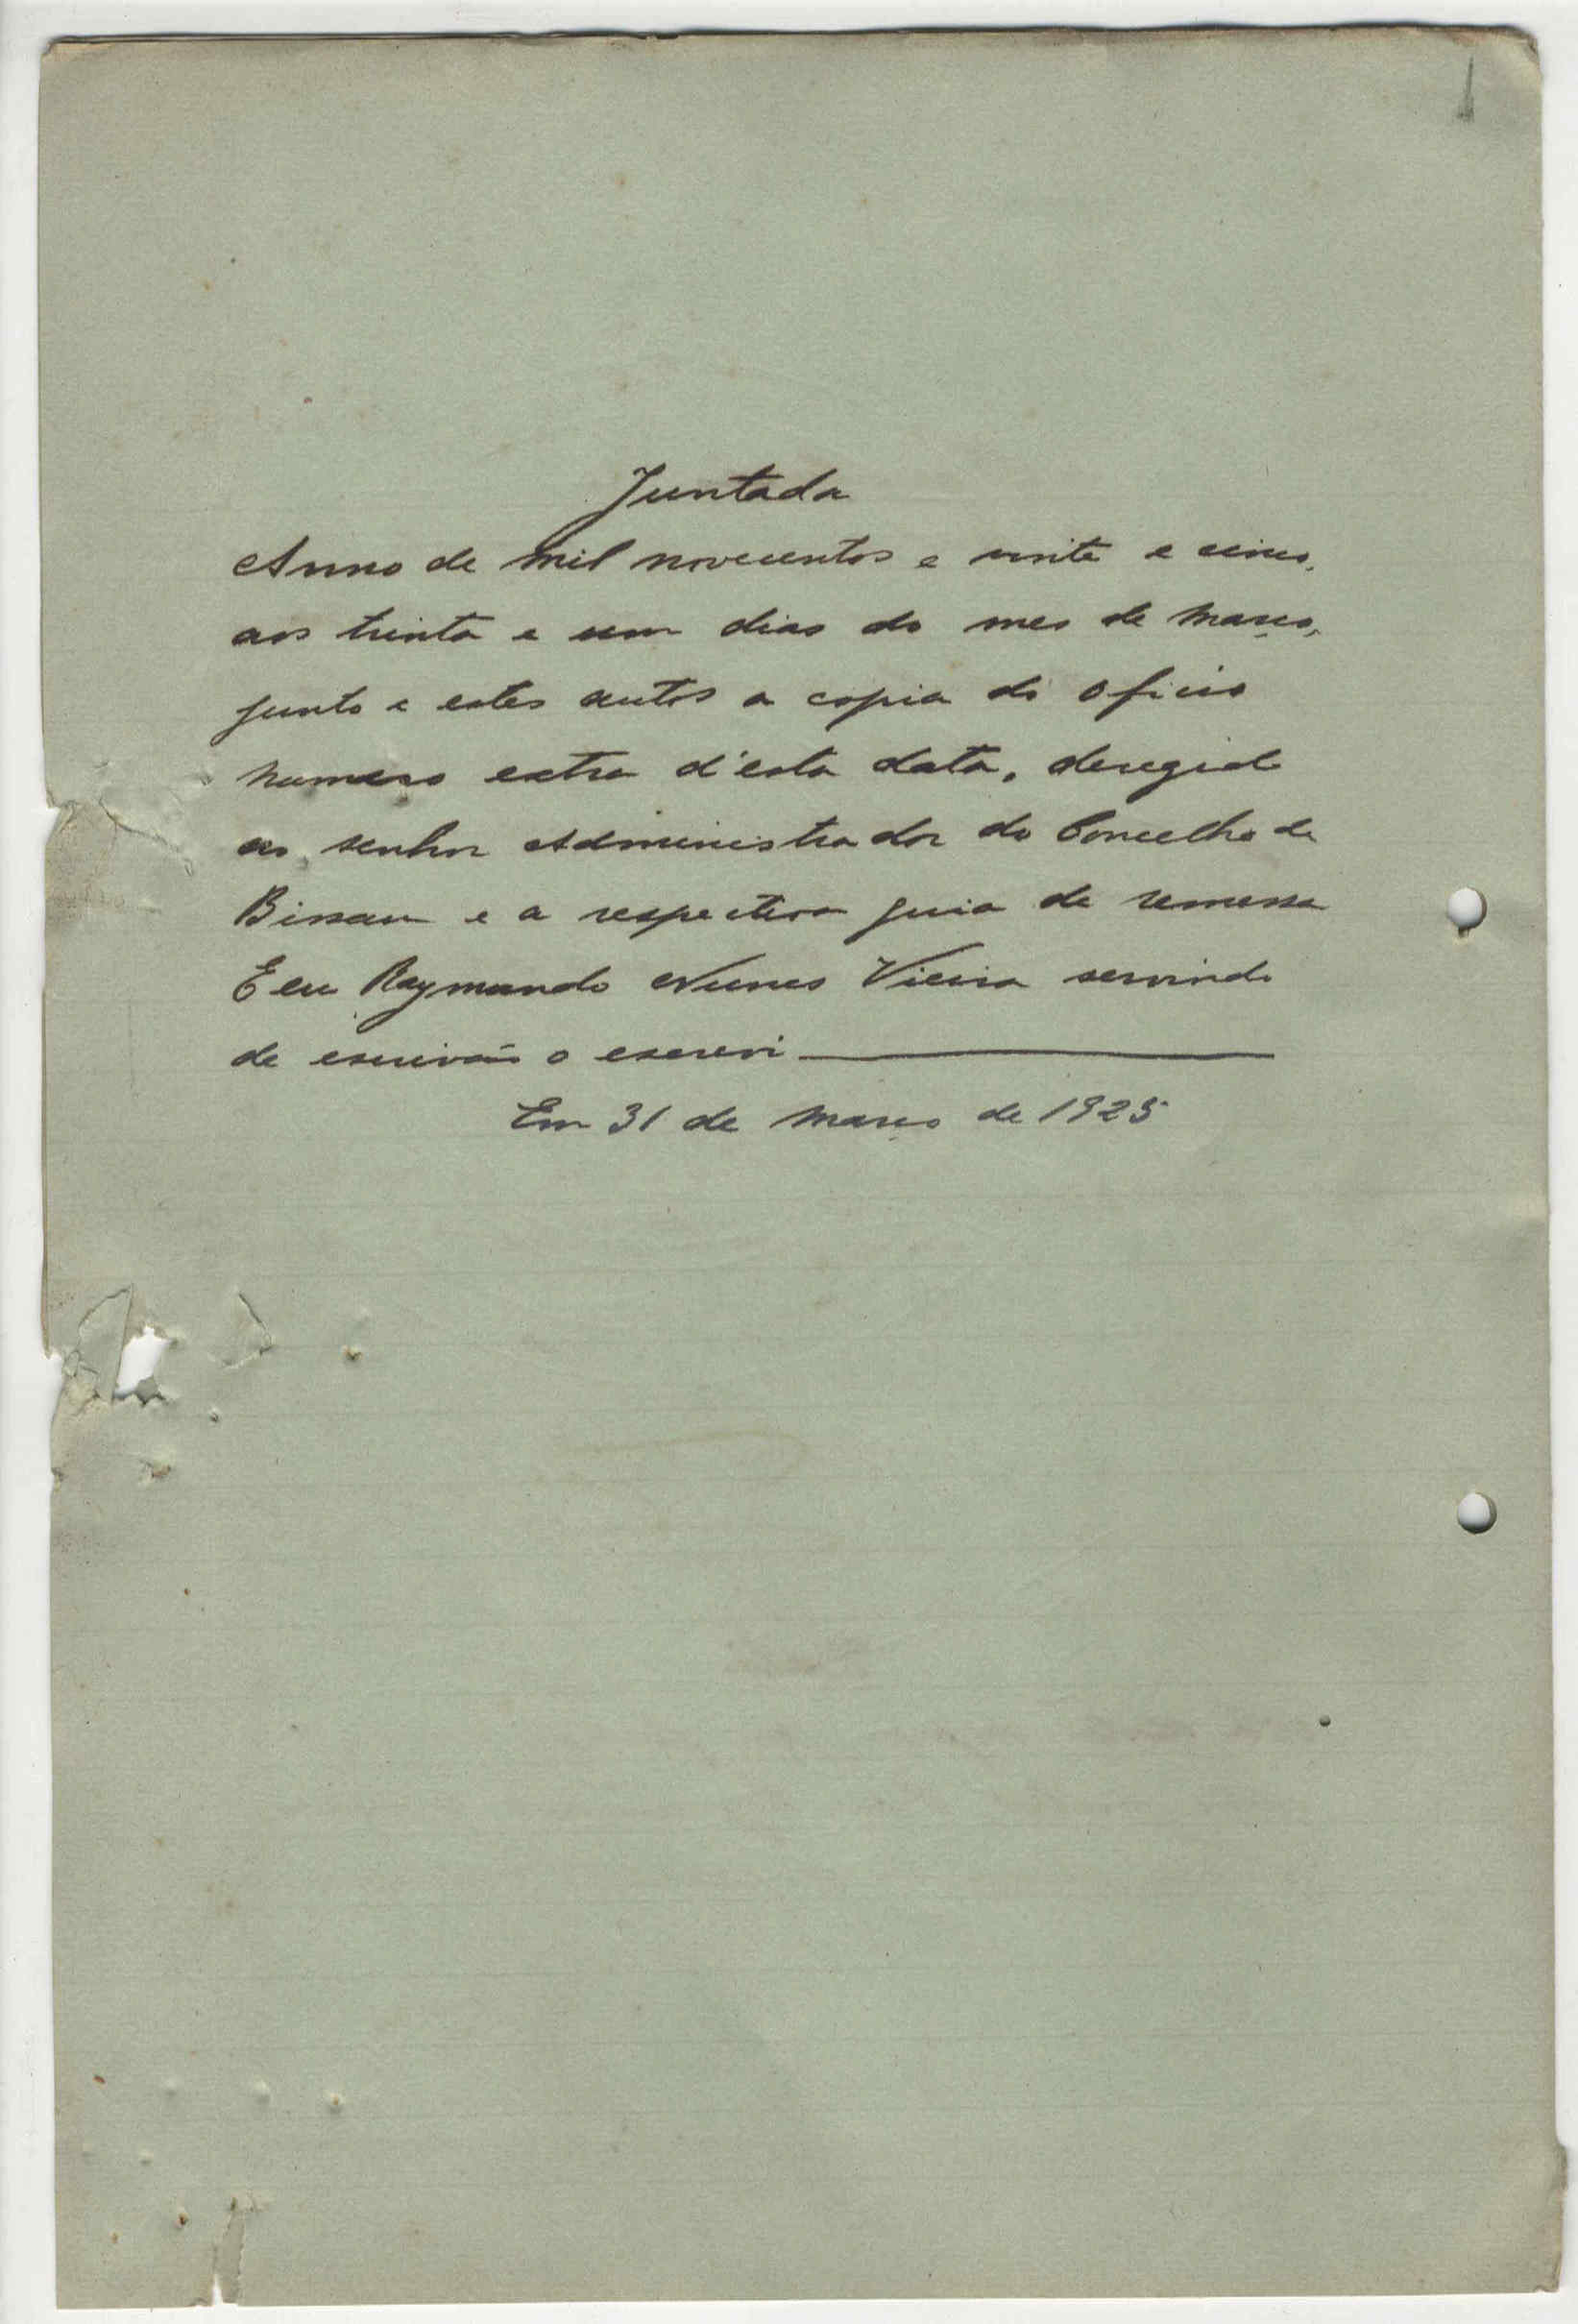 Juntada
Anno de mil novecentos e vinte e cinco,
aos trinta e um dias do mes de março,
junto a estes autos a copia do oficio
numero extra d'esta data, deregido
ao senhor Administrador do Concelho de
Bissau e a respectiva guia de remessa
E eu Raymundo Nunes Vieira servindo
de escrivão o escrevi
Em 31 de março de 1925